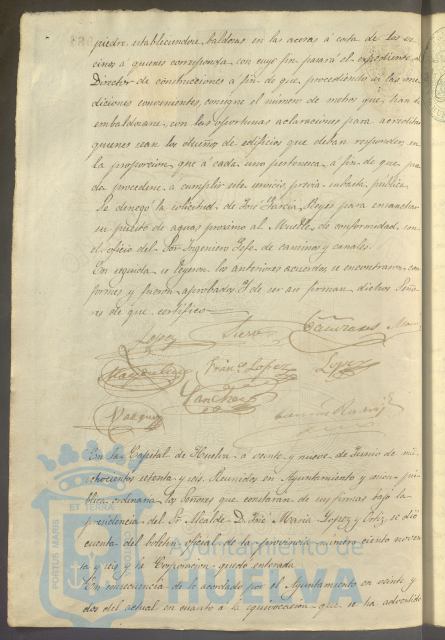 piedra, estableciendose baldosas en las aceras á costa de los ve-
cinos á quienes corresponda, con cuyo fin pasará el expediente al
Director de construcciones a fin de que, procediendo en las me-
diciones convenientes consigne el número de metros que han de
embaldosarse, con las oportunas aclaraciones para acreditar
quienes sean los dueños de edificios que deban responder, en
la proporcion que á cada uno pertenezca, á fin de que pue
da procederse a cumplir este servicio, previa subasta pública.
Se denegó la solicitud de José Garcia Reyes para ensanchar
su puesto de aguas proximo al Muelle, de conformidad con
el oficio del Sor Ingeniero Jefe de caminos y canales.
En seguida se leyeron los anteriores acuerdos, se encontraron con
formes y fueron aprobados. Y de ser asi firman dichos Seño
res de que certifico
Lopez
Franco Lopez Lopez
Sanchez
Vazquez
En la Capital de Huelva á veinte y nueve de Junio de mil
ochocientos setenta y seis. Reunidos en Ayuntamiento y sesion pú
blica ordinaria los Señores que constaran de sus firmas bajo la
presidencia del Sr Alcalde D. José Maria Lopez y Ortiz se dió
cuenta del boletin oficial de la provincia número ciento noven
ta y seis y la Corporacion quedó enterada
En consecuencia de lo acordado por el Ayuntamiento en veinte y
dos del actual en cuanto á la equivocacion que se ha advertido
PORTUS MARIS ET TERRÆ
Ayuntamiento de
HUELVA